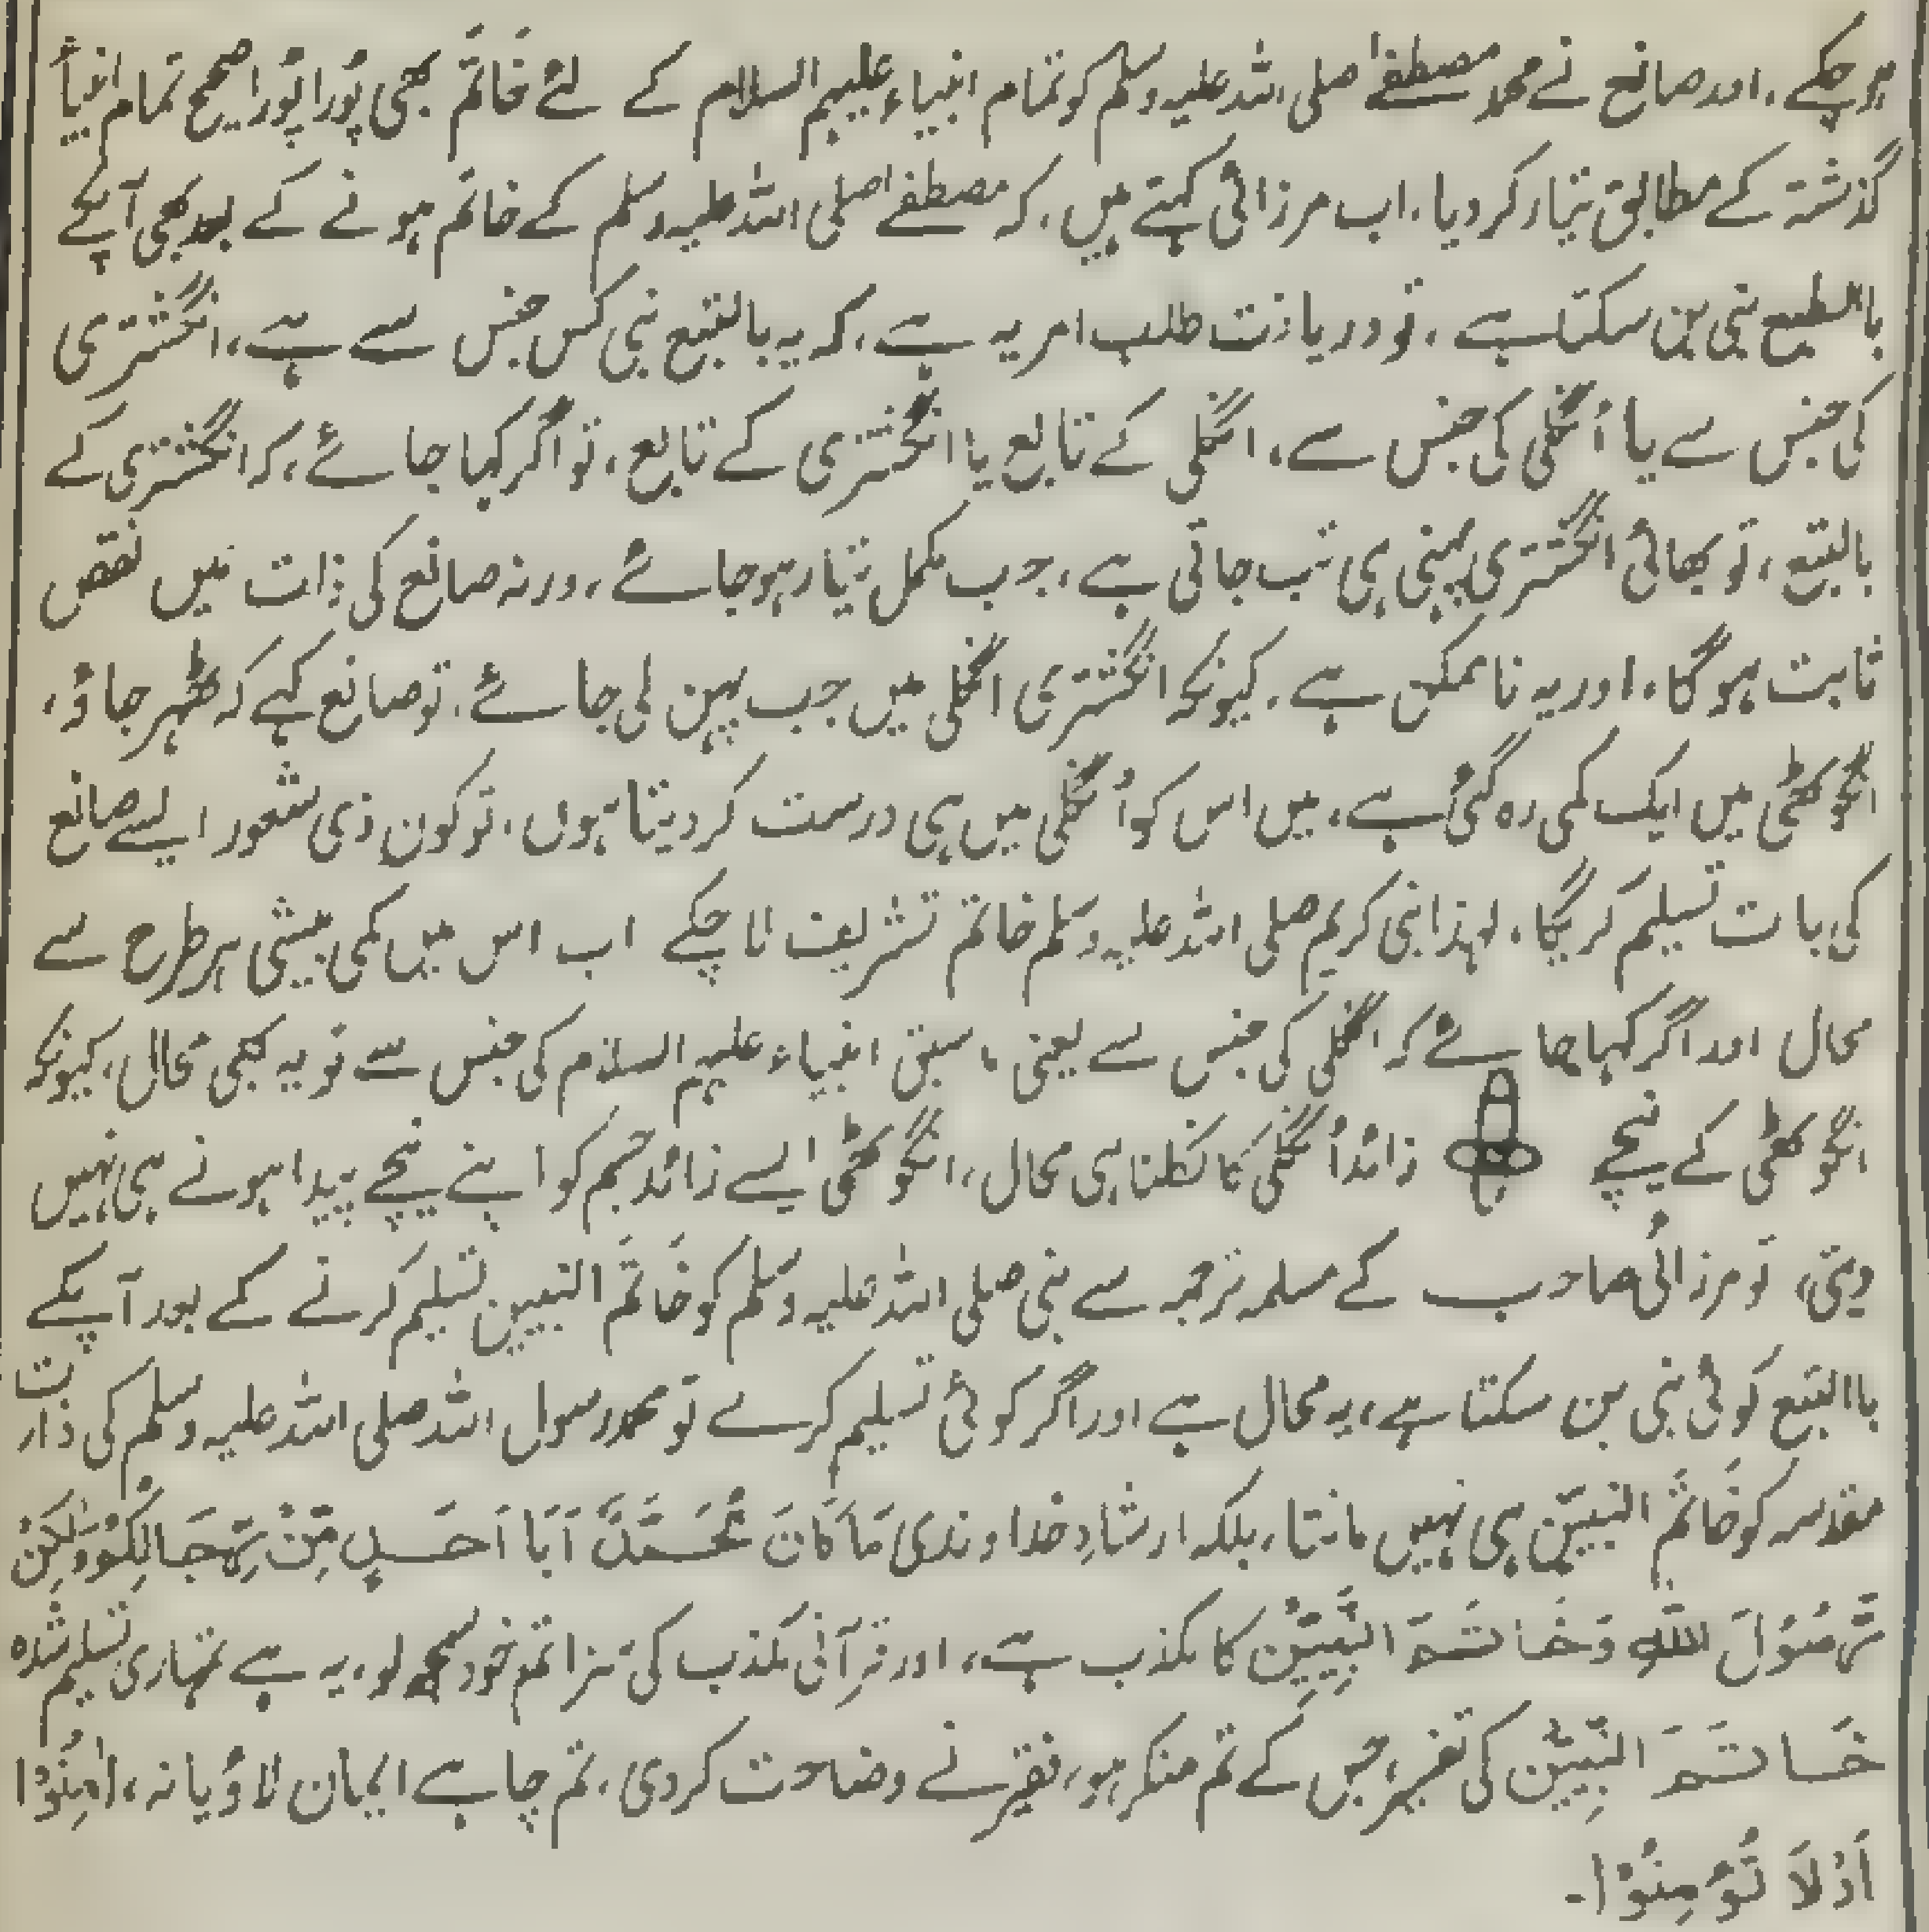 ہو چکے، اور صانع نے محمد مصطفےٰ صلی اللہ علیہ وسلم کو تمام انبیاء علیہم السلام کے لئے خَاتَم بھی پُورا پُورا صحیح تمام انبیاءؑ
گذشتہ کے مطابق تیار کر دیا، اب مرزائی کہتے ہیں، کہ مصطفےٰ صلی اللہ علیہ وسلم کے خاتم ہونے کے بعد بھی آپکے
بالطبع نبی بن سکتا ہے، تو دریافت طلب امر یہ ہے، کہ یہ بالتبع نبی کس جنس سے ہے، انگشتری
کی جنس سے یا اُنگلی کی جنس سے، انگلی کے تابع یا انگشتری کے تابع، تو اگر کہا جائے، کہ انگشتری کے
بالتبع، تو بھائی انگشتری پہنی ہی تب جاتی ہے، جب مکمل تیار ہو جائے، ورنہ صانع کی ذات میں نقص
ثابت ہو گا، اور یہ ناممکن ہے، کیونکہ انگشتری انگلی میں جب پہن لی جائے، تو صانع کہے کہ ٹھہر جاؤ،
انگوٹھی میں ایک کمی رہ گئی ہے، میں اس کو اُنگلی میں ہی درست کر دیتا ہوں، تو کون ذی شعور ایسے صانع
کی بات تسلیم کریگا، لہذا نبی کریم صلی اللہ علیہ وسلم خاتم تشریف لا چکے اب اس میں کمی بیشی ہر طرح سے
محال اور اگر کہا جائے کہ انگلی کی جنس سے یعنی ماسبق انبیاء علیہم السلام کی جنس سے تو یہ بھی محال، کیونکہ
انگوٹھی کے نیچے زائد اُنگلی کا نکلنا ہی محال، انگوٹھی ایسے زائد جسم کو اپنے نیچے پیدا ہونے ہی نہیں
دیتی، تو مرزائی صاحب کے مسلمہ ترجمہ سے نبی صلی اللہ علیہ وسلم کو خَاتَمَ النبیین تسلیم کرنے کے بعد آپکے
باالتبع کوئی نبی بن سکتا ہے، یہ محال ہے اور اگر کوئی تسلیم کرے تو محمد رسول اللہ صلی اللہ علیہ وسلم کی ذات
مقدسہ کو خَاتَمَ النبیّن ہی نہیں مانتا، بلکہ ارشادِ خداوندی مَا كَانَ مُحَمَّدٌ اَبَا اَحَدٍ مِّنْ رِّجَالِكُمْ وَلٰكِنْ
رَّسُوْلَ اللّٰهِ وَخَاتَمَ النَّبِيِّيْن کا مکذب ہے، اور قرآنی مکذب کی سزا تم خود سمجھ لو، یہ ہے تمہاری تسلیم شدہ
خَاتَمَ النَّبِيِّيْن کی تفسیر، جس کے تم منکر ہو، فقیر نے وضاحت کر دی، تم چاہے ایمان لاؤ یا نہ، اٰمِنُوْا
اَوْ لَا تُؤْمِنُوْا۔